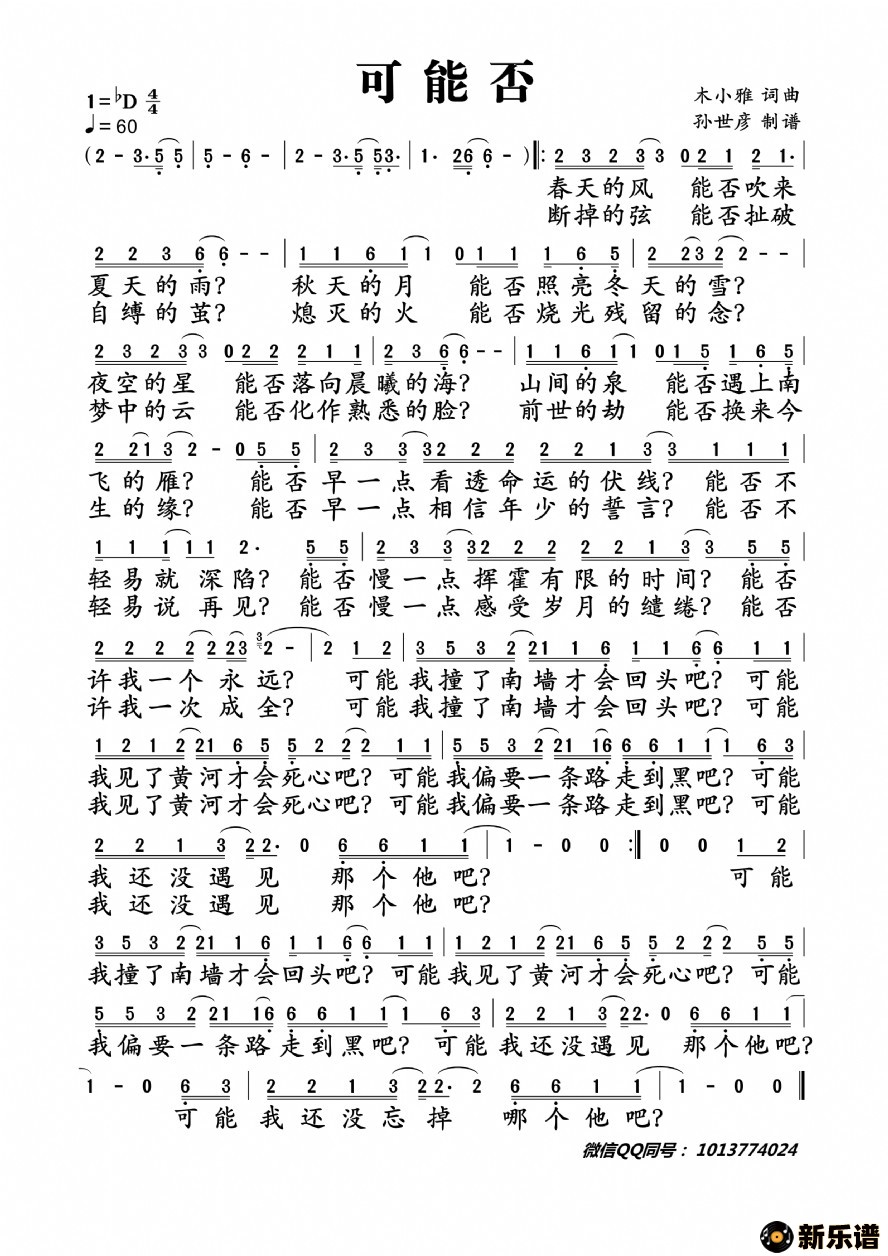 可能否
1=♭D 4/4
木小雅 词曲
♩=60
孙世彦 制谱
(2 - 3·5 5 | 5 - 6 - | 2 - 3·5 53· | 1· 26 6 - ) ‖: 2 3 2 33 021 21· |
春天的风 能否吹来
断掉的弦 能否扯破
2 2 3 6 6 - - | 1 1 6 1 1 0 1 1 1 6 5 | 2 23 2 2 - - |
夏天的雨? 秋天的月 能否照亮冬天的雪?
自缚的茧? 熄灭的火 能否烧光残留的念?
2 3 2 3 3 0 2 2 2 1 1 | 2 3 6 6 - - | 1 1 6 1 1 0 1 5 1 6 5 |
夜空的星 能否落向晨曦的海? 山间的泉 能否遇上南
梦中的云 能否化作熟悉的脸? 前世的劫 能否换来今
2 21 3 2 - 0 5 5 | 2 3 3 32 2 2 2 2 1 3 3 1 1 1 |
飞的雁? 能否早一点看透命运的伏线? 能否不
生的缘? 能否早一点相信年少的誓言? 能否不
1 1 1 1 1 2· 5 5 | 2 3 3 32 2 2 2 2 1 3 3 5 5 |
轻易就深陷? 能否慢一点挥霍有限的时间? 能否
轻易说再见? 能否慢一点感受岁月的缱绻? 能否
2 2 2 2 2 23 3 2 - | 2 1 2 | 3 5 3 2 21 1 6 1 1 6 6 1 1 |
许我一个永远? 可能我撞了南墙才会回头吧? 可能
许我一次成全? 可能我撞了南墙才会回头吧? 可能
1 2 1 2 21 6 5 5 2 2 2 1 1 | 5 5 3 2 21 16 6 6 1 1 1 6 3 |
我见了黄河才会死心吧? 可能我偏要一条路走到黑吧? 可能
我见了黄河才会死心吧? 可能我偏要一条路走到黑吧? 可能
2 2 1 3 22· 0 6 6 1 1 | 1 - 0 0 :‖ 0 0 1 2 |
我还没遇见 那个他吧? 可能
我还没遇见 那个他吧?
3 5 3 2 21 1 6 1 1 6 6 1 1 | 1 2 1 2 21 6 5 5 2 2 2 5 5 |
我撞了南墙才会回头吧? 可能我见了黄河才会死心吧? 可能
5 5 3 2 21 16 6 6 1 1 1 6 3 | 2 2 1 3 22· 0 6 6 1 1 |
我偏要一条路走到黑吧? 可能我还没遇见 那个他吧?
1 - 0 6 3 | 2 2 1 3 22· 2 6 6 1 1 | 1 - 0 0 ‖
可能我还没忘掉 哪个他吧?
微信QQ同号: 1013774024
新乐谱